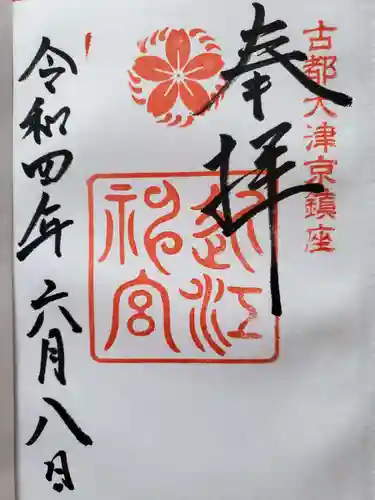 古都大津京鎮座
奉拝
近江神宮
令和四年六月八日